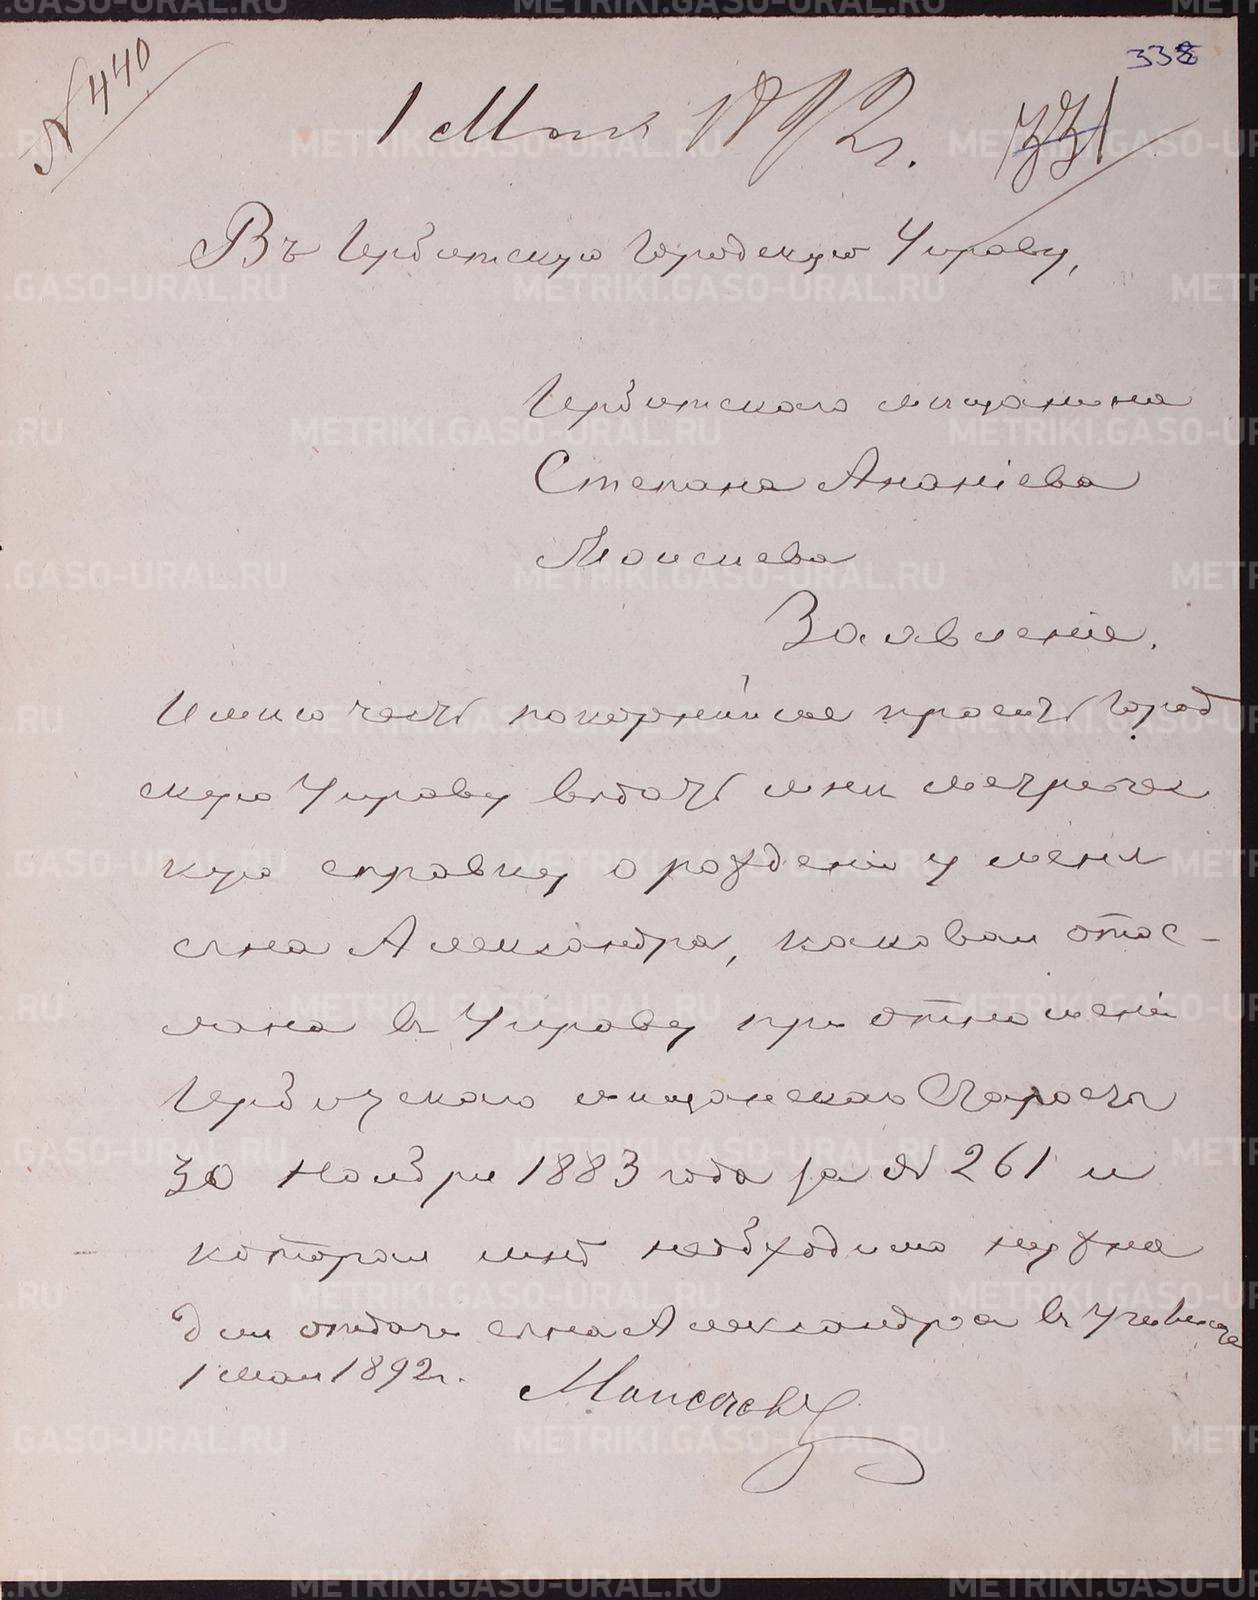 № 440
338
1 Мая 1892 г.
331
Въ Ирбитскую Городскую Управу,
Ирбитскаго мещанина
Степана Ананiева
Моисиева
Заявленiе.
Имию честь покорнийше просить Город
скую Управу выдать мни метричес
кую справку о рожденiи у меня
сына Александра, каковая отос-
лана въ Управу при отношенiи
Ирбитскаго мещанскаго Старосты
30 Ноября 1883 года за № 261 и
которая мнѣ необходимо нужна
для отдачи сына Александра въ
1 мая 1892 г. Моисеевъ
METRIKI.GASO-URAL.RU